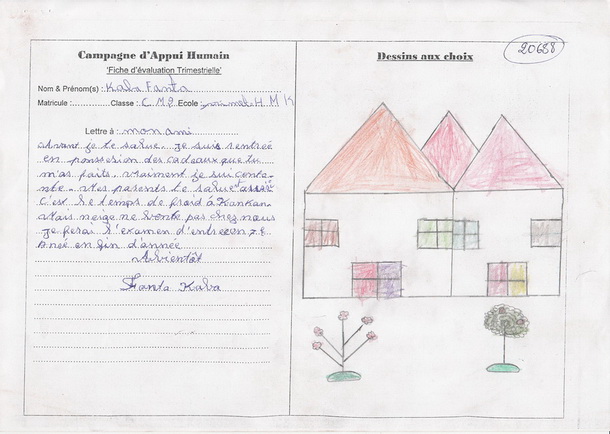 20688
Campagne d'Appui Humain
'Fiche d'évaluation Trimestrielle'
Nom & Prénom(s) : Kaba Fanta
Matricule :............. Classe : C M 2 Ecole primaire H M K
Lettre à : mon ami
Avant je te salue. Je suis rentrée
en possession des cadeaux que tu
m'as faits. vraiment je sui conte-
nte. Mes parents te salue assez
C'est le temps de froid à Kankan.
Mais neige ne tombe pas chez nous
Je ferai l'examen d'entrée en 7è
Anée en fin d'année
A bientôt
Fanta Kaba
Dessins aux choix